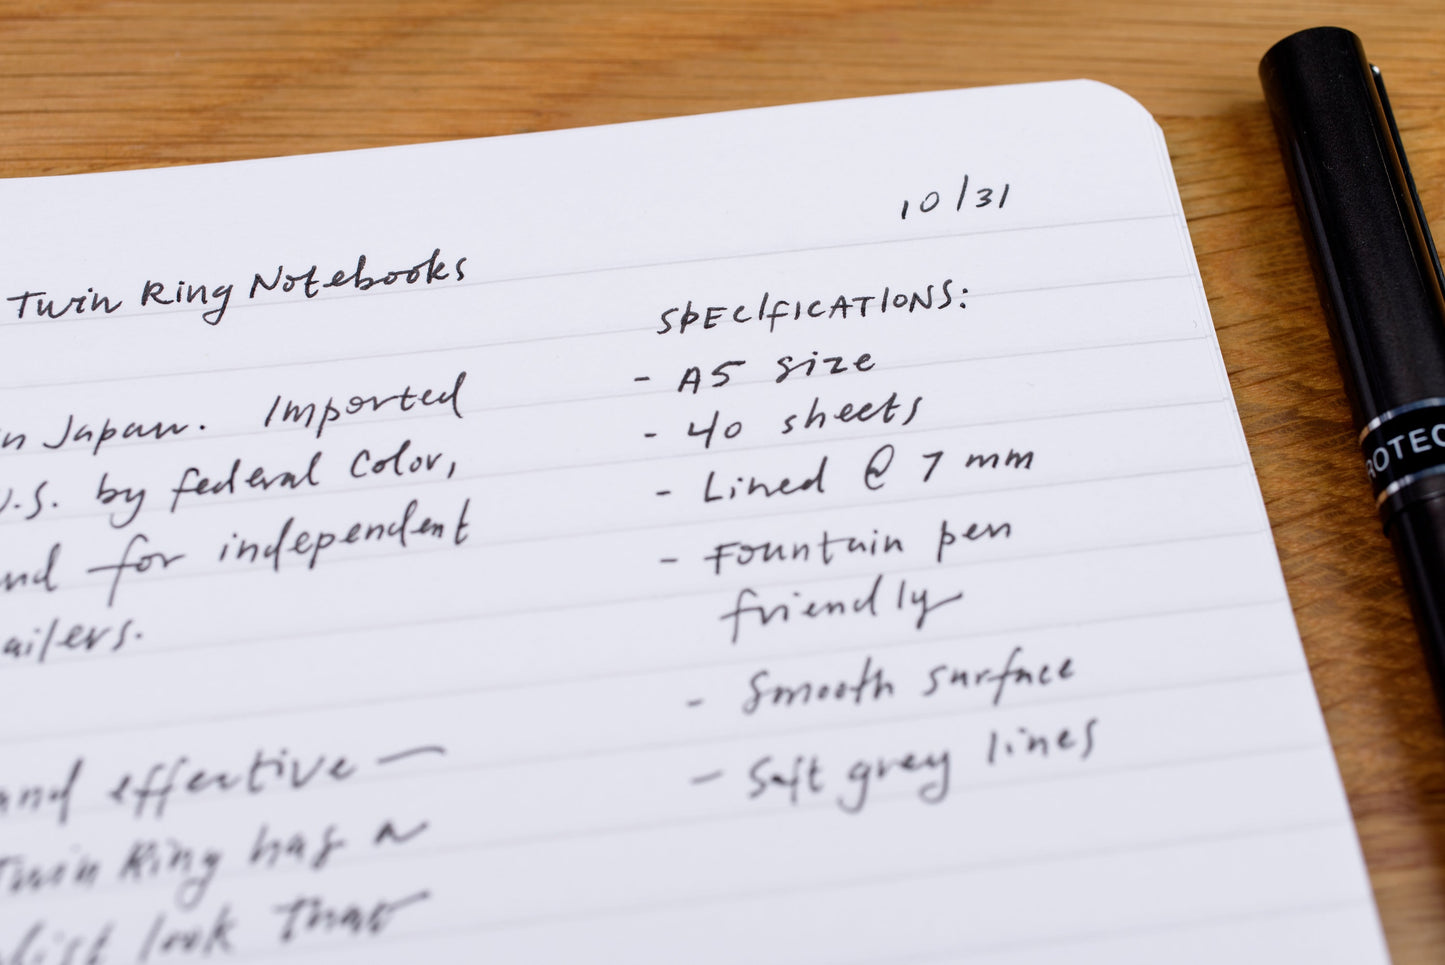 10/31
Twin Ring Notebooks
in Japan. Imported
U.S. by Federal Color,
and for independent
ailers.
and effective —
Twin Ring has a
look that
SPECIFICATIONS:
- A5 size
- 40 sheets
- Lined @ 7 mm
- Fountain pen
friendly
- Smooth surface
- Soft grey lines
ROTEC